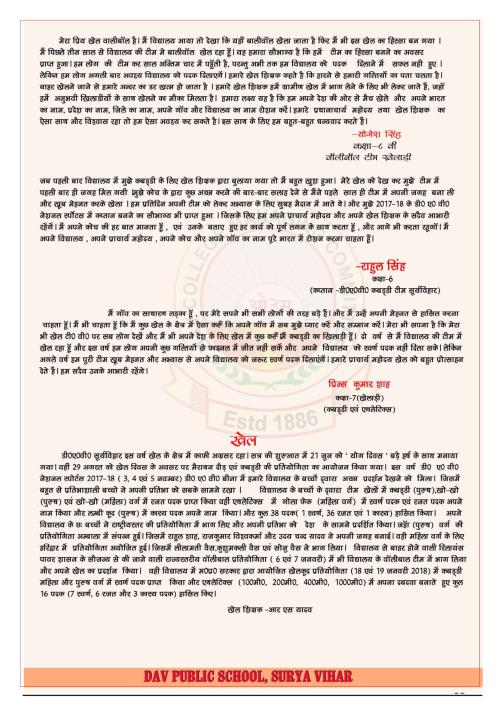 मेरा प्रिय खेल वालीबॉल है। मैं विद्यालय आया तो देखा कि यहाँ बालीवॉल खेला जाता है फिर मैं भी इस खेल का हिस्सा बन गया ।
मैं पिछले तीन साल से विद्यालय की टीम मे बालीवॉल खेल रहा हूँ। यह हमारा सौभाग्य है कि हमें टीम का हिस्सा बनने का अवसर
प्राप्त हुआ। हम लोग की टीम कट साल अन्तिम चार में पहुँती है, परन्तु अभी तक हम विद्यालय को पदक दिलाने में सफल नही हुए ।
लेकिन हम लोग अगली बार अवश्य विद्यालय को पदक दिलाएगें। हमारे खेल शिक्षक कहते है कि हारने से हमारी गल्तियों का पता चलता है।
बाहर खेलने जाने से हमारे अन्दर का डर खत्म हो जाता है । हमारे खेल शिक्षक हमें ग्रामीण खेल में भाग लेने के लिए भी लेकर जाते हैं, जहाँ
हमें अनुभवी खिलाडीयों के साथ खेलने का मौका मिलता है। हमारा लक्ष्य यह है कि हम अपने देश की ओर से मैच खेले और अपने भारत
का नाम, प्रदेश का नाम, जिले का नाम, अपने गाँव और विद्यालय का नाम रोशन करें। हमारे प्रधानाचार्य महोदय तथा खेल शिक्षक का
ऐसा साथ और विश्वास रहा तो हम ऐसा अवश्य कर सकते है। इस साथ के लिए हम बहुत-बहुत धन्यवाद करते हैं।
-योगेश सिंह
कक्षा-८ वीं
वॉलीबॉल टीम खेलाड़ी
जब पहली बार विद्यालय में मुझे कबड्डी के लिए खेल शिक्षक द्वारा बुलाया गया तो मैं बहुत खुश हुआ। मेरे खेल को देख कर मुझे टीम में
पहली बार ही जगह मिल गयी मुझे कोच के द्वारा कुछ अच्छा करने की बार-बार सलाह देने से मैंने पहले साल ही टीम में अपनी जगह बना ली
और खूब मेहनत करके खेला । हम प्रतिदिन अपनी टीम को लेकर अभ्यास के लिए सुबह मैदान में आते थे। और मुझे 2017-18 के डी० ए० वी०
नेशनल स्पोर्टस में कप्तान बनने का सौभाग्य भी प्राप्त हुआ । जिसके लिए हम अपने प्राचार्य महोदय और अपने खेल शिक्षक के सदैव आभारी
रहेंगें। मैं अपने कोच की हर बात मानता हूँ , एवं उनके बताए हुए हर कार्य को पूर्ण लगन के साथ करता हूँ , और आगे भी करता रहूगाँ। मैं
अपने विद्यालय , अपने प्राचार्य महोदय , अपने कोच और अपने गाँव का नाम पूरे भारत में रोशन करना चाहता हूँ।
-राहुल सिंह
कक्षा-6
(कप्तान -डी०ए०वी० कबड्डी टीम सूर्यविहार)
मैं गाँव का साधारण लड़का हूँ , पर मेरे सपने भी सभी लोगों की तरह बड़े हैं। और मैं उन्हें अपनी मेहनत से हासिल करना
चाहता हूँ। मैं भी चाहता हूँ कि मैं कुछ खेल के क्षेत्र में ऐसा करूँ कि अपने गाँव में सब मुझे प्यार करें और सम्मान करें। मेरा भी सपना है कि मेरा
भी खेल टी० वी० पर सब लोग देखें और मैं भी अपने देश के लिए खेल में कुछ करूँ मैं कबड्डी का खिलाड़ी हूँ। दो वर्ष से मैं विद्यालय की टीम में
खेल रहा हूँ और इस वर्ष हम लोग अपनी कुछ गल्तियों से फाइनल में जीत नही सकें और अपने विद्यालय को स्वर्ण पदक नही दिला सके। लेकिन
अगले वर्ष हम पूरी टीम खूब मेहनत और अभ्यास से अपने विद्यालय को जरूर स्वर्ण पदक दिलाएंगें। हमारे प्राचार्य महोदय खेल को बहुत प्रोत्साहन
देते है। हम सदैव उनके आभारी रहेंगे।
प्रिन्स कुमार शाह
कक्षा-7(खेलाड़ी)
(कबड्डी एवं एथलेटिक्स)
COLLEGE
Estd 1886
खेल
डी०ए०वी० सूर्यविहार इस वर्ष खेल के क्षेत्र में काफी अग्रसर रहा। सत्र की शुरुआत में 21 जून को ' योग दिवस ' बड़े हर्ष के साथ मनाया
गया। वही 29 अगस्त को खेल दिवस के अवसर पर मैराथन दौड़ एवं कबड्डी की प्रतियोगिता का आयोजन किया गया। इस वर्ष डी० ए० वी०
नेशनल स्पोर्टस 2017-18 ( 3, 4 एवं 5 नवम्बर) डी० ए० वी० बीना में हमारे विद्यालय के बच्चों द्वारा अच्छा प्रदर्शन देखने को मिला। जिसमें
बहुत से प्रतिभाशाली बच्चो ने अपनी प्रतिभा को सबके सामने रखा । विद्यालय के बच्चों के द्वारा टीम खेलों में कबड्डी (पुरुष),खो-खो
(पुरुष) एवं खो-खो (महिला) वर्ग में रजत पदक प्राप्त किया वही एथलेटिक्स में गोला फेक (महिला वर्ग) में स्वर्ण पदक एवं रजत पदक अपने
नाम किया और लम्बी कूद (पुरुष) में कास्य पदक अपने नाम किया। और कुल 38 पदक( 1 स्वर्ण, 36 रजत एवं 1 कास्य) हासिल किया। अपने
विद्यालय के छः बच्चों ने राष्ट्रीयस्तर की प्रतियोगिता में भाग लिए और अपनी प्रतिभा को देश के सामने प्रदर्शित किया। जहाँ (पुरुष) वर्ग की
प्रतियोगिता अम्बाला में संपन्न हुई। जिसमें राहुल शाह, राजकुमार विश्वकर्मा और उदय चन्द्र यादव ने अपनी जगह बनाई। वही महिला वर्ग के लिए
हरिद्वार में प्रतियोगिता अयोजित हुई। जिसमें लीलामती वैस,कुशुमकली वैस एवं सोनु वैस ने भाग लिया। विद्यालय से बाहर होने वाली रिलायंस
पावर शासन के सौजन्य से की जाने वाली राज्यस्तरीय वॉलीबाल प्रतियोगिता ( 6 एवं 7 जनवरी) में भी विद्यालय के वॉलीबाल टीम नें भाग लिया
और अपने खेल का प्रदर्शन किया। वही विद्यालय में म०प्र० सरकार द्वारा आयोजित खेलकूद प्रतियोगिता (18 एवं 19 जनवरी 2018) में कबड्डी
महिला और पुरुष वर्ग में स्वर्ण पदक प्राप्त किया और एथलेटिक्स (100मी०, 200मी०, 400मी०, 1000मी०) में अपना दबदवा बनाते हुए कुल
16 पदक (7 स्वर्ण, 6 रजत और 3 कास्य पदक) हासिल किए।
खेल शिक्षक -आर एस यादव
DAV PUBLIC SCHOOL, SURYA VIHAR